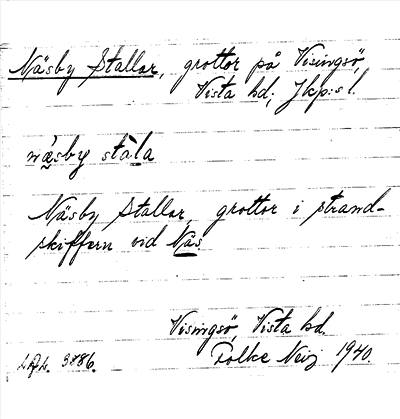 Näsby Stallar, grottor på Visingsö,
Vista hd; Jkp:s l.
næsby stàla
Näsby Stallar, grottor i strand-
skiffern vid Näs
Visingsö, Vista hd.
Folke Neij 1940.